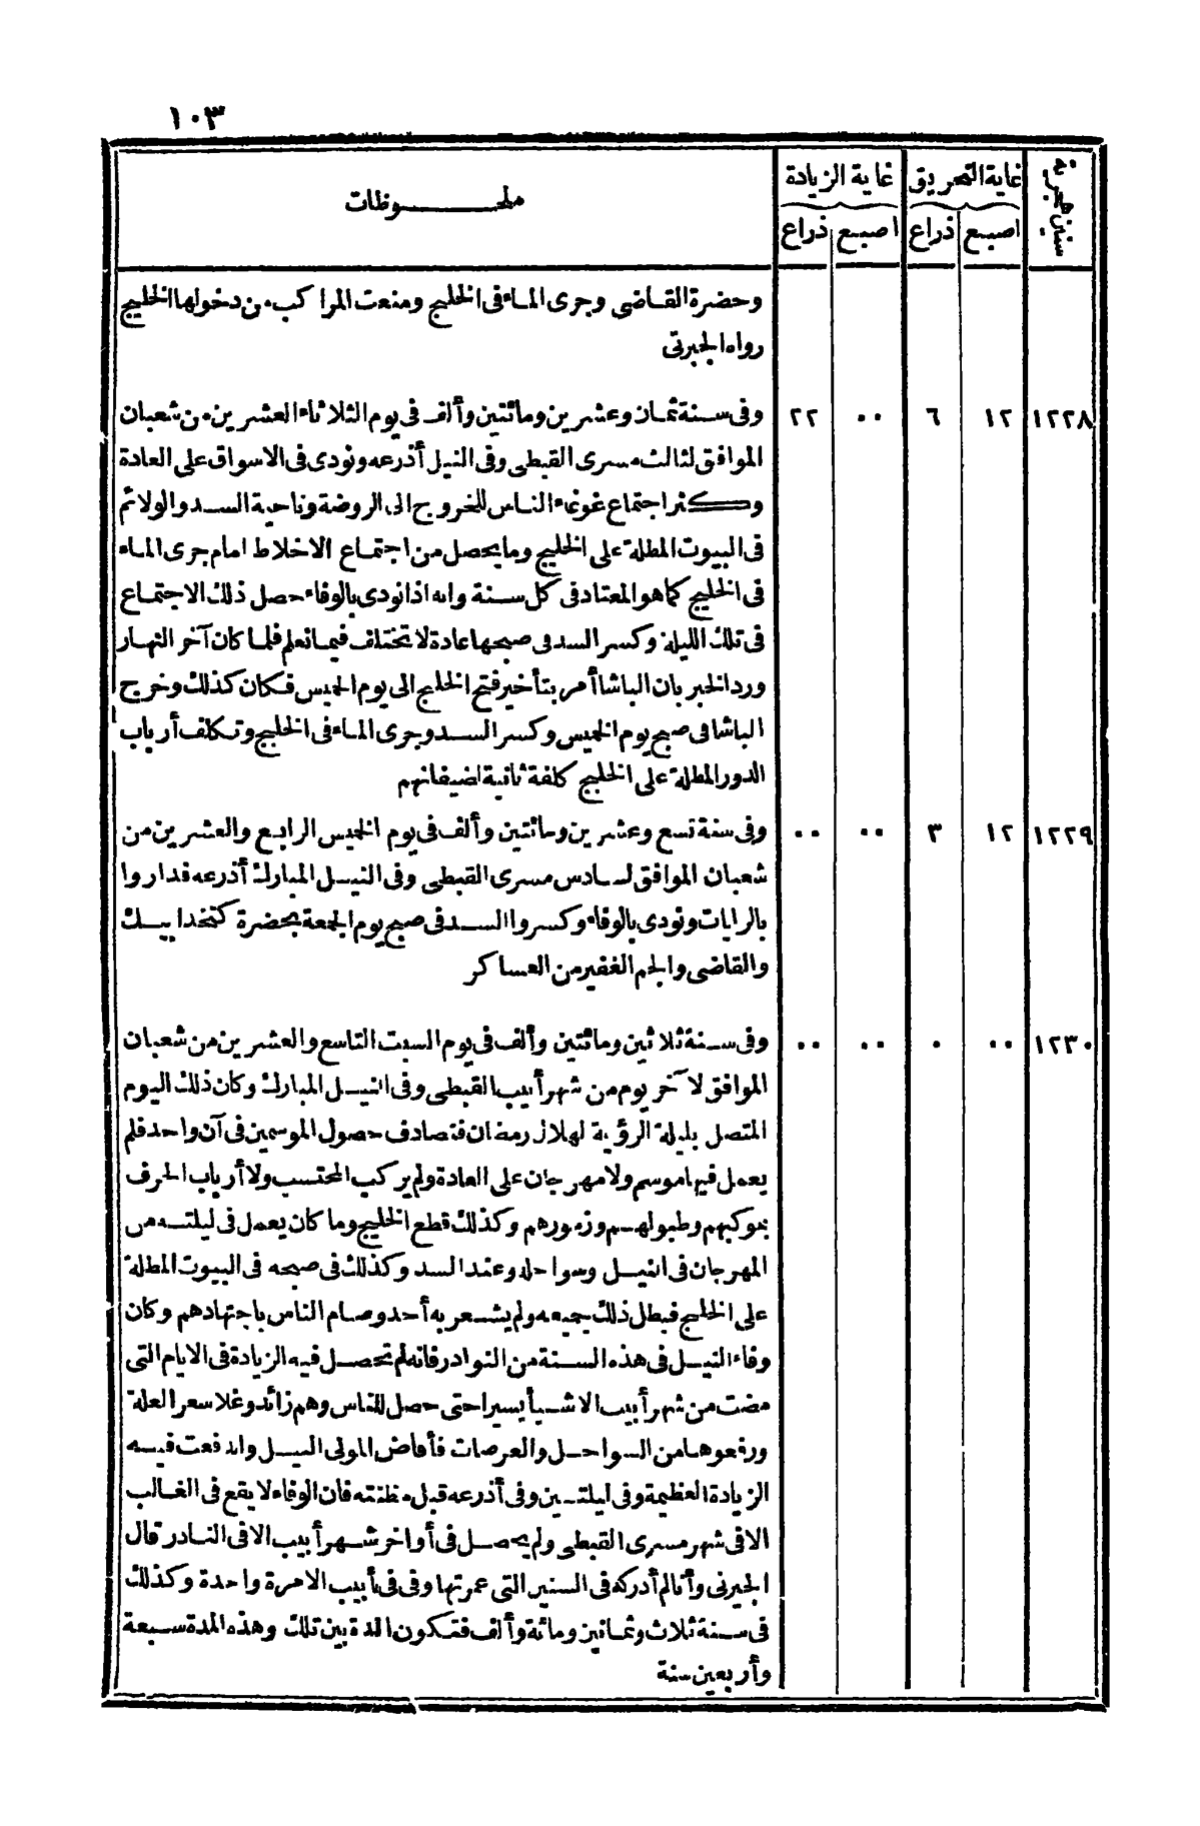 ١٠٣
سنين هجرية
غاية التحريق
غاية الزيادة
ملحـــوظات
اصبع ذراع اصبع ذراع
وحضرة القاضى وجرى الماء فى الخليج ومنعت المراكب من دخولها الخليج
رواه الجبرتى
١٢٢٨ ١٢ ٦ ٠٠ ٢٢ وفى سنة ثمان وعشرين ومائتين وألف فى يوم الثلاثاء العشرين من شعبان
الموافق لثالث مسرى القبطى وفى النيل أذرعه ونودى فى الاسواق على العادة
وكثر اجتماع غوغاء الناس للخروج الى الروضة وناحية السد والولائم
فى البيوت المطلة على الخليج وما يحصل من اجتماع الاخلاط امام جرى الماء
فى الخليج كما هو المعتاد فى كل سنة وانه اذا نودى بالوفاء حصل ذلك الاجتماع
فى تلك الليلة وكسر السد فى صبحها عادة لا تختلف فيما نعلم فلما كان آخر النهار
ورد الخبر بان الباشا أمر بتأخير فتح الخليج الى يوم الخميس فكان كذلك وخرج
الباشا فى صبح يوم الخميس وكسر السد وجرى الماء فى الخليج وتكلف أرباب
الدور المطلة على الخليج كلفة ثانية لضيفانهم
١٢٢٩ ١٢ ٣ ٠٠ ٠٠ وفى سنة تسع وعشرين ومائتين وألف فى يوم الخميس الرابع والعشرين من
شعبان الموافق لسادس مسرى القبطى وفى النيل المبارك أذرعه فداروا
بالرايات ونودى بالوفاء وكسروا السد فى صبح يوم الجمعة بحضرة كتخدا بيك
والقاضى والجم الغفير من العساكر
١٢٣٠ ٠٠ ٠ ٠٠ ٠٠ وفى سنة ثلاثين ومائتين وألف فى يوم السبت التاسع والعشرين من شعبان
الموافق لآخر يوم من شهر أبيب القبطى وفى النيل المبارك وكان ذلك اليوم
المتصل بليلة الرؤية لهلال رمضان فتصادف حصول الموسمين فى آن واحد فلم
يعمل فيها موسم ولا مهرجان على العادة ولم يركب المحتسب ولا أرباب الحرف
بموكبهم وطبولهم وزمورهم وكذلك قطع الخليج وما كان يعمل فى ليلته من
المهرجان فى النيل وسواحله وعند السد وكذلك فى صبحه فى البيوت المطلة
على الخليج فبطل ذلك جميعه ولم يشعر به أحد وصام الناس باجتهادهم وكان
وفاء النيل فى هذه السنة من النوادر فانه لم تحصل فيه الزيادة فى الايام التى
مضت من شهر أبيب الا شيأ يسيرا حتى حصل للناس وهم زائد وغلا سعر الغلة
ورفعوها من السواحل والعرصات فأفاض المولى النيل واندفعت فيه
الزيادة العظيمة وفى ليلتين وفى أذرعه قبل مظنته فان الوفاء لا يقع فى الغالب
الا فى شهر مسرى القبطى ولم يحصل فى أواخر شهر أبيب الا فى النادر قال
الجبرتى وأنا لم أدركه فى السنين التى عمرتها وفى فى أبيب الا مرة واحدة وكذلك
فى سنة ثلاث وثمانين ومائة وألف فتكون المدة بين تلك وهذه المدة سبعة
وأربعين سنة